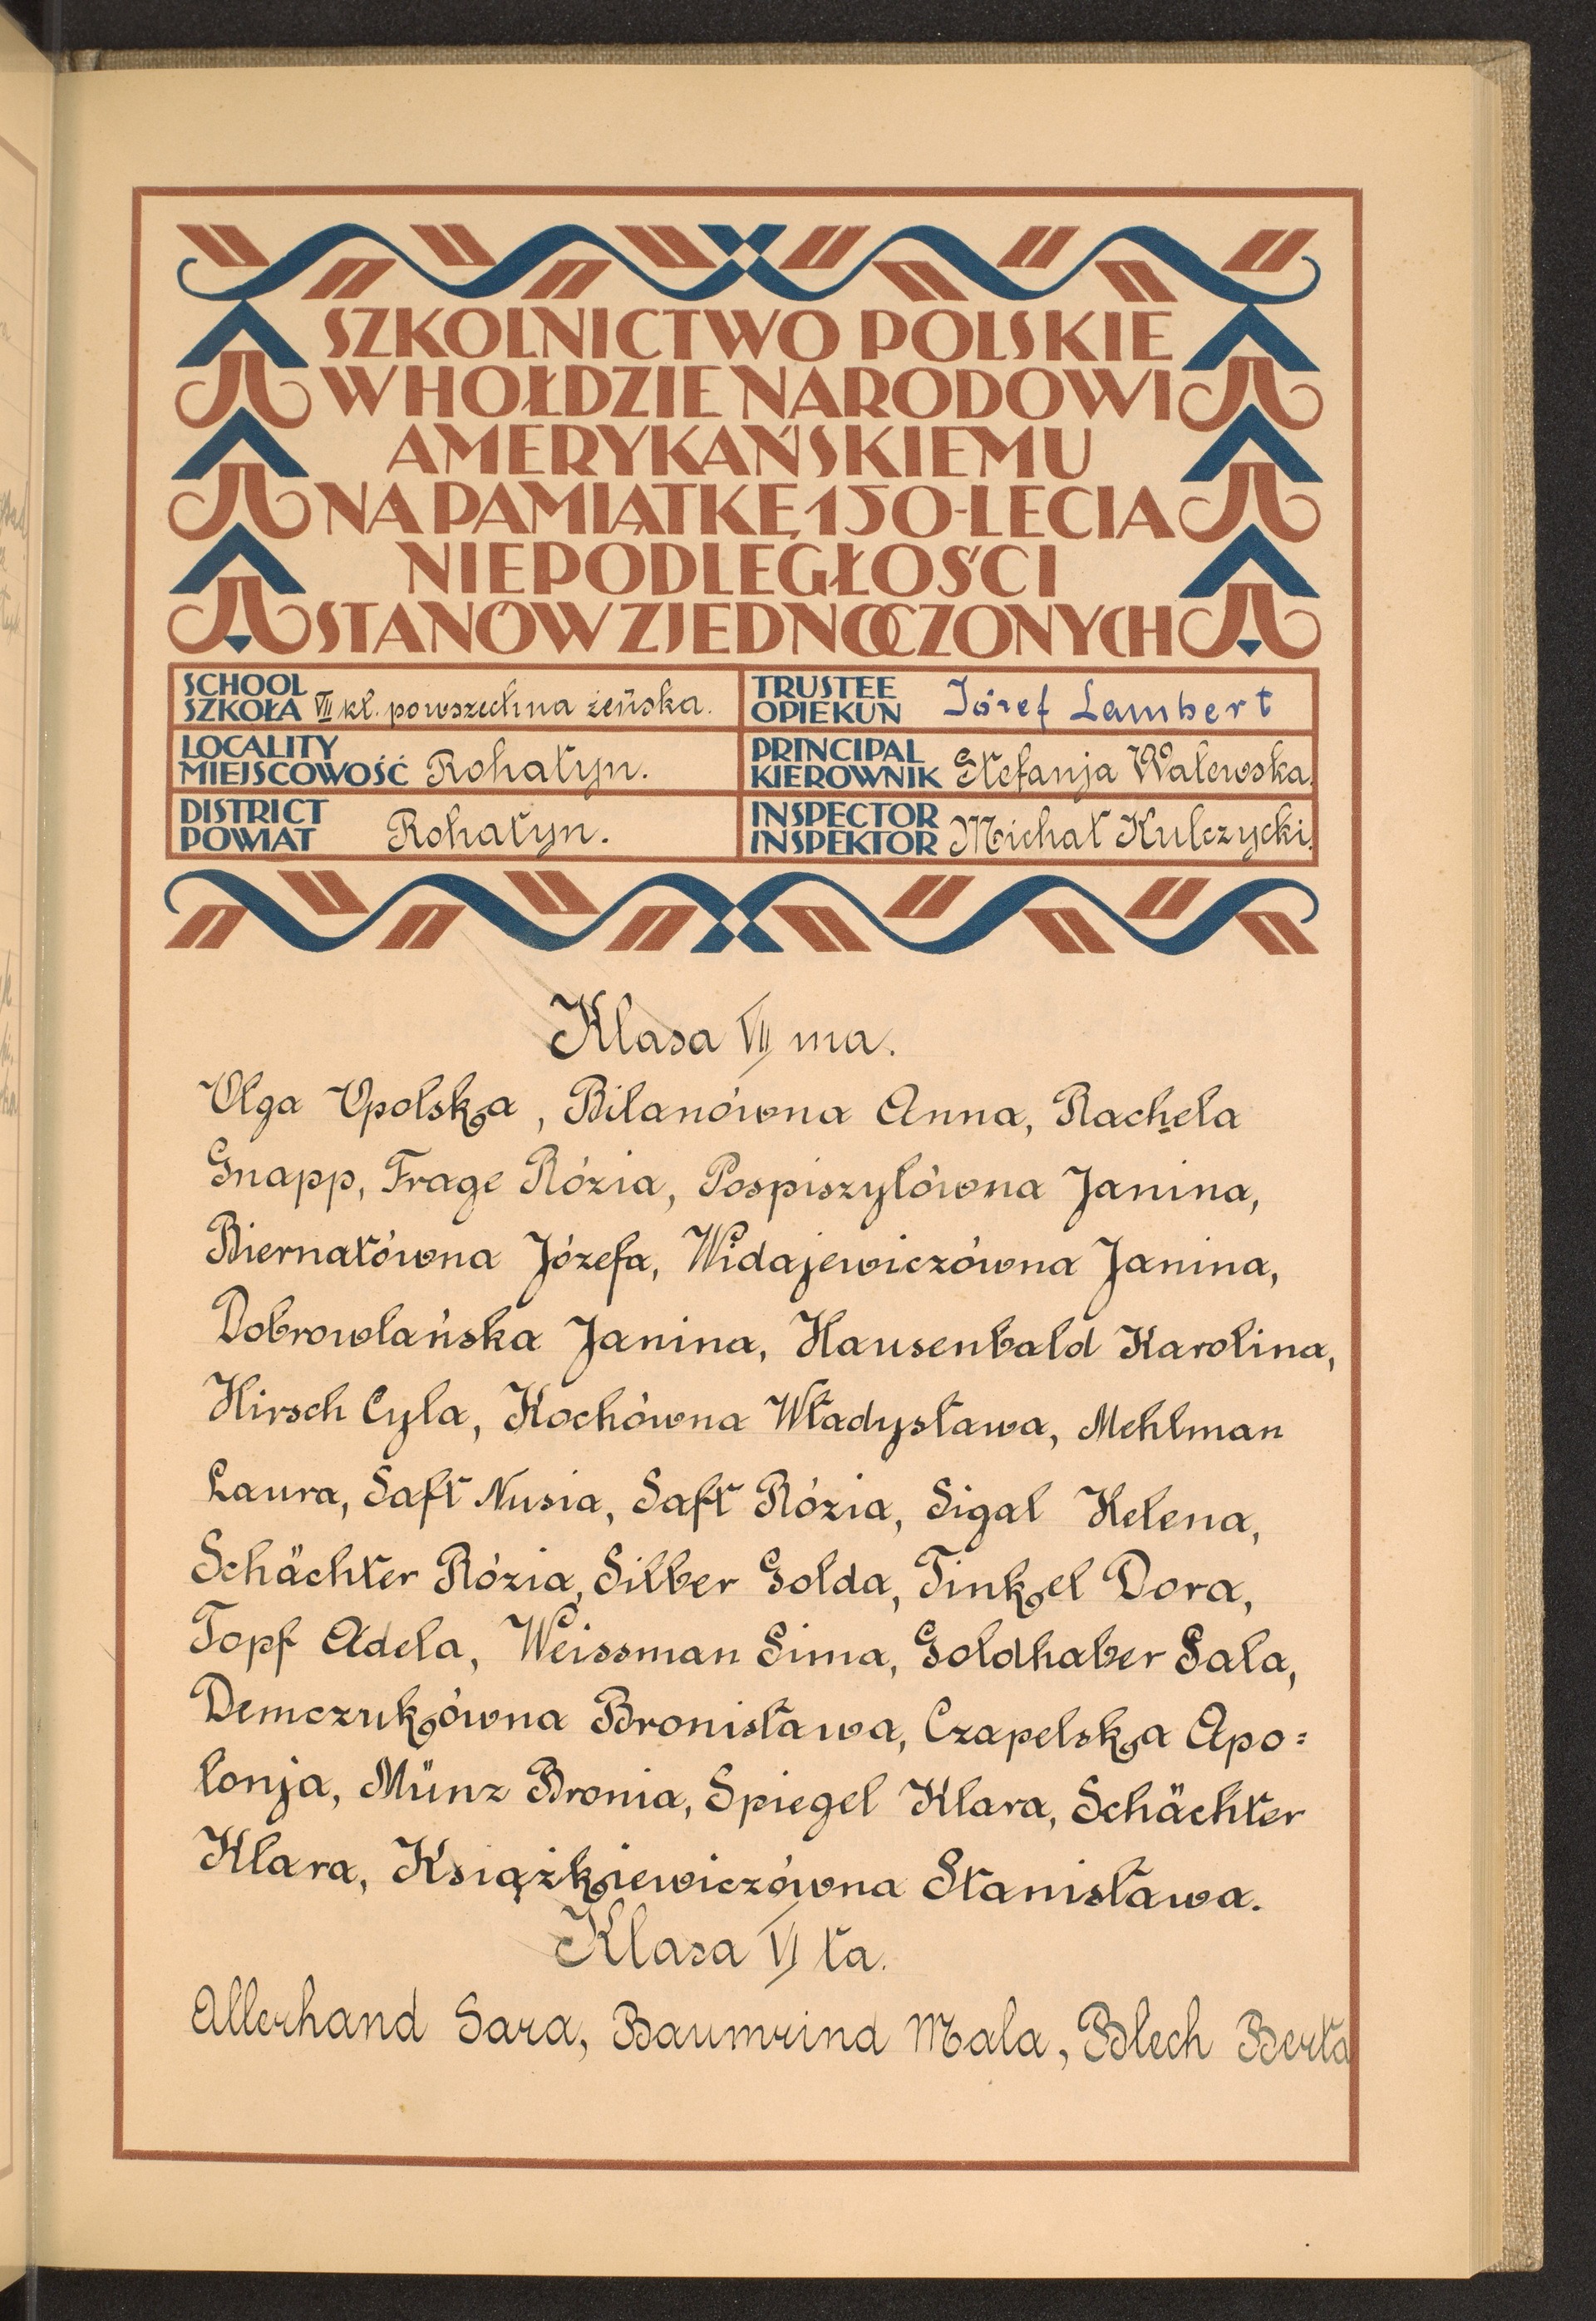 SZKOLNICTWO POLSKIE
W HOŁDZIE NARODOWI
AMERYKAŃSKIEMU
NA PAMIĄTKĘ 150-LECIA
NIEPODLEGŁOŚCI
STANÓW ZJEDNOCZONYCH
SCHOOL
SZKOŁA VII kl. powszechna żeńska.
TRUSTEE
OPIEKUN Józef Lambert
LOCALITY
MIEJSCOWOŚĆ Rohatyn.
PRINCIPAL
KIEROWNIK Stefanja Walewska.
DISTRICT
POWIAT Rohatyn.
INSPECTOR
INSPEKTOR Michał Kulczycki.
Klasa VII ma.
Olga Opolska, Bilanówna Anna, Rachela
Gnapp, Frage Rózia, Pospiszylówna Janina,
Biernatówna Józefa, Widajewiczówna Janina,
Dobrowlańska Janina, Hausenbald Karolina,
Hirsch Cyla, Kochówna Władysława, Mehlman
Laura, Saft Nusia, Saft Rózia, Sigal Helena,
Schächter Rózia, Silber Golda, Tinkel Dora,
Topf Adela, Weissman Sima, Goldhaber Sala,
Demczukówna Bronisława, Czapelska Apo=
lonja, Münz Bronia, Spiegel Klara, Schächter
Klara, Książkiewiczówna Stanisława.
Klasa VI ta.
Allerhand Sara, Baumrind Mala, Blech Berta